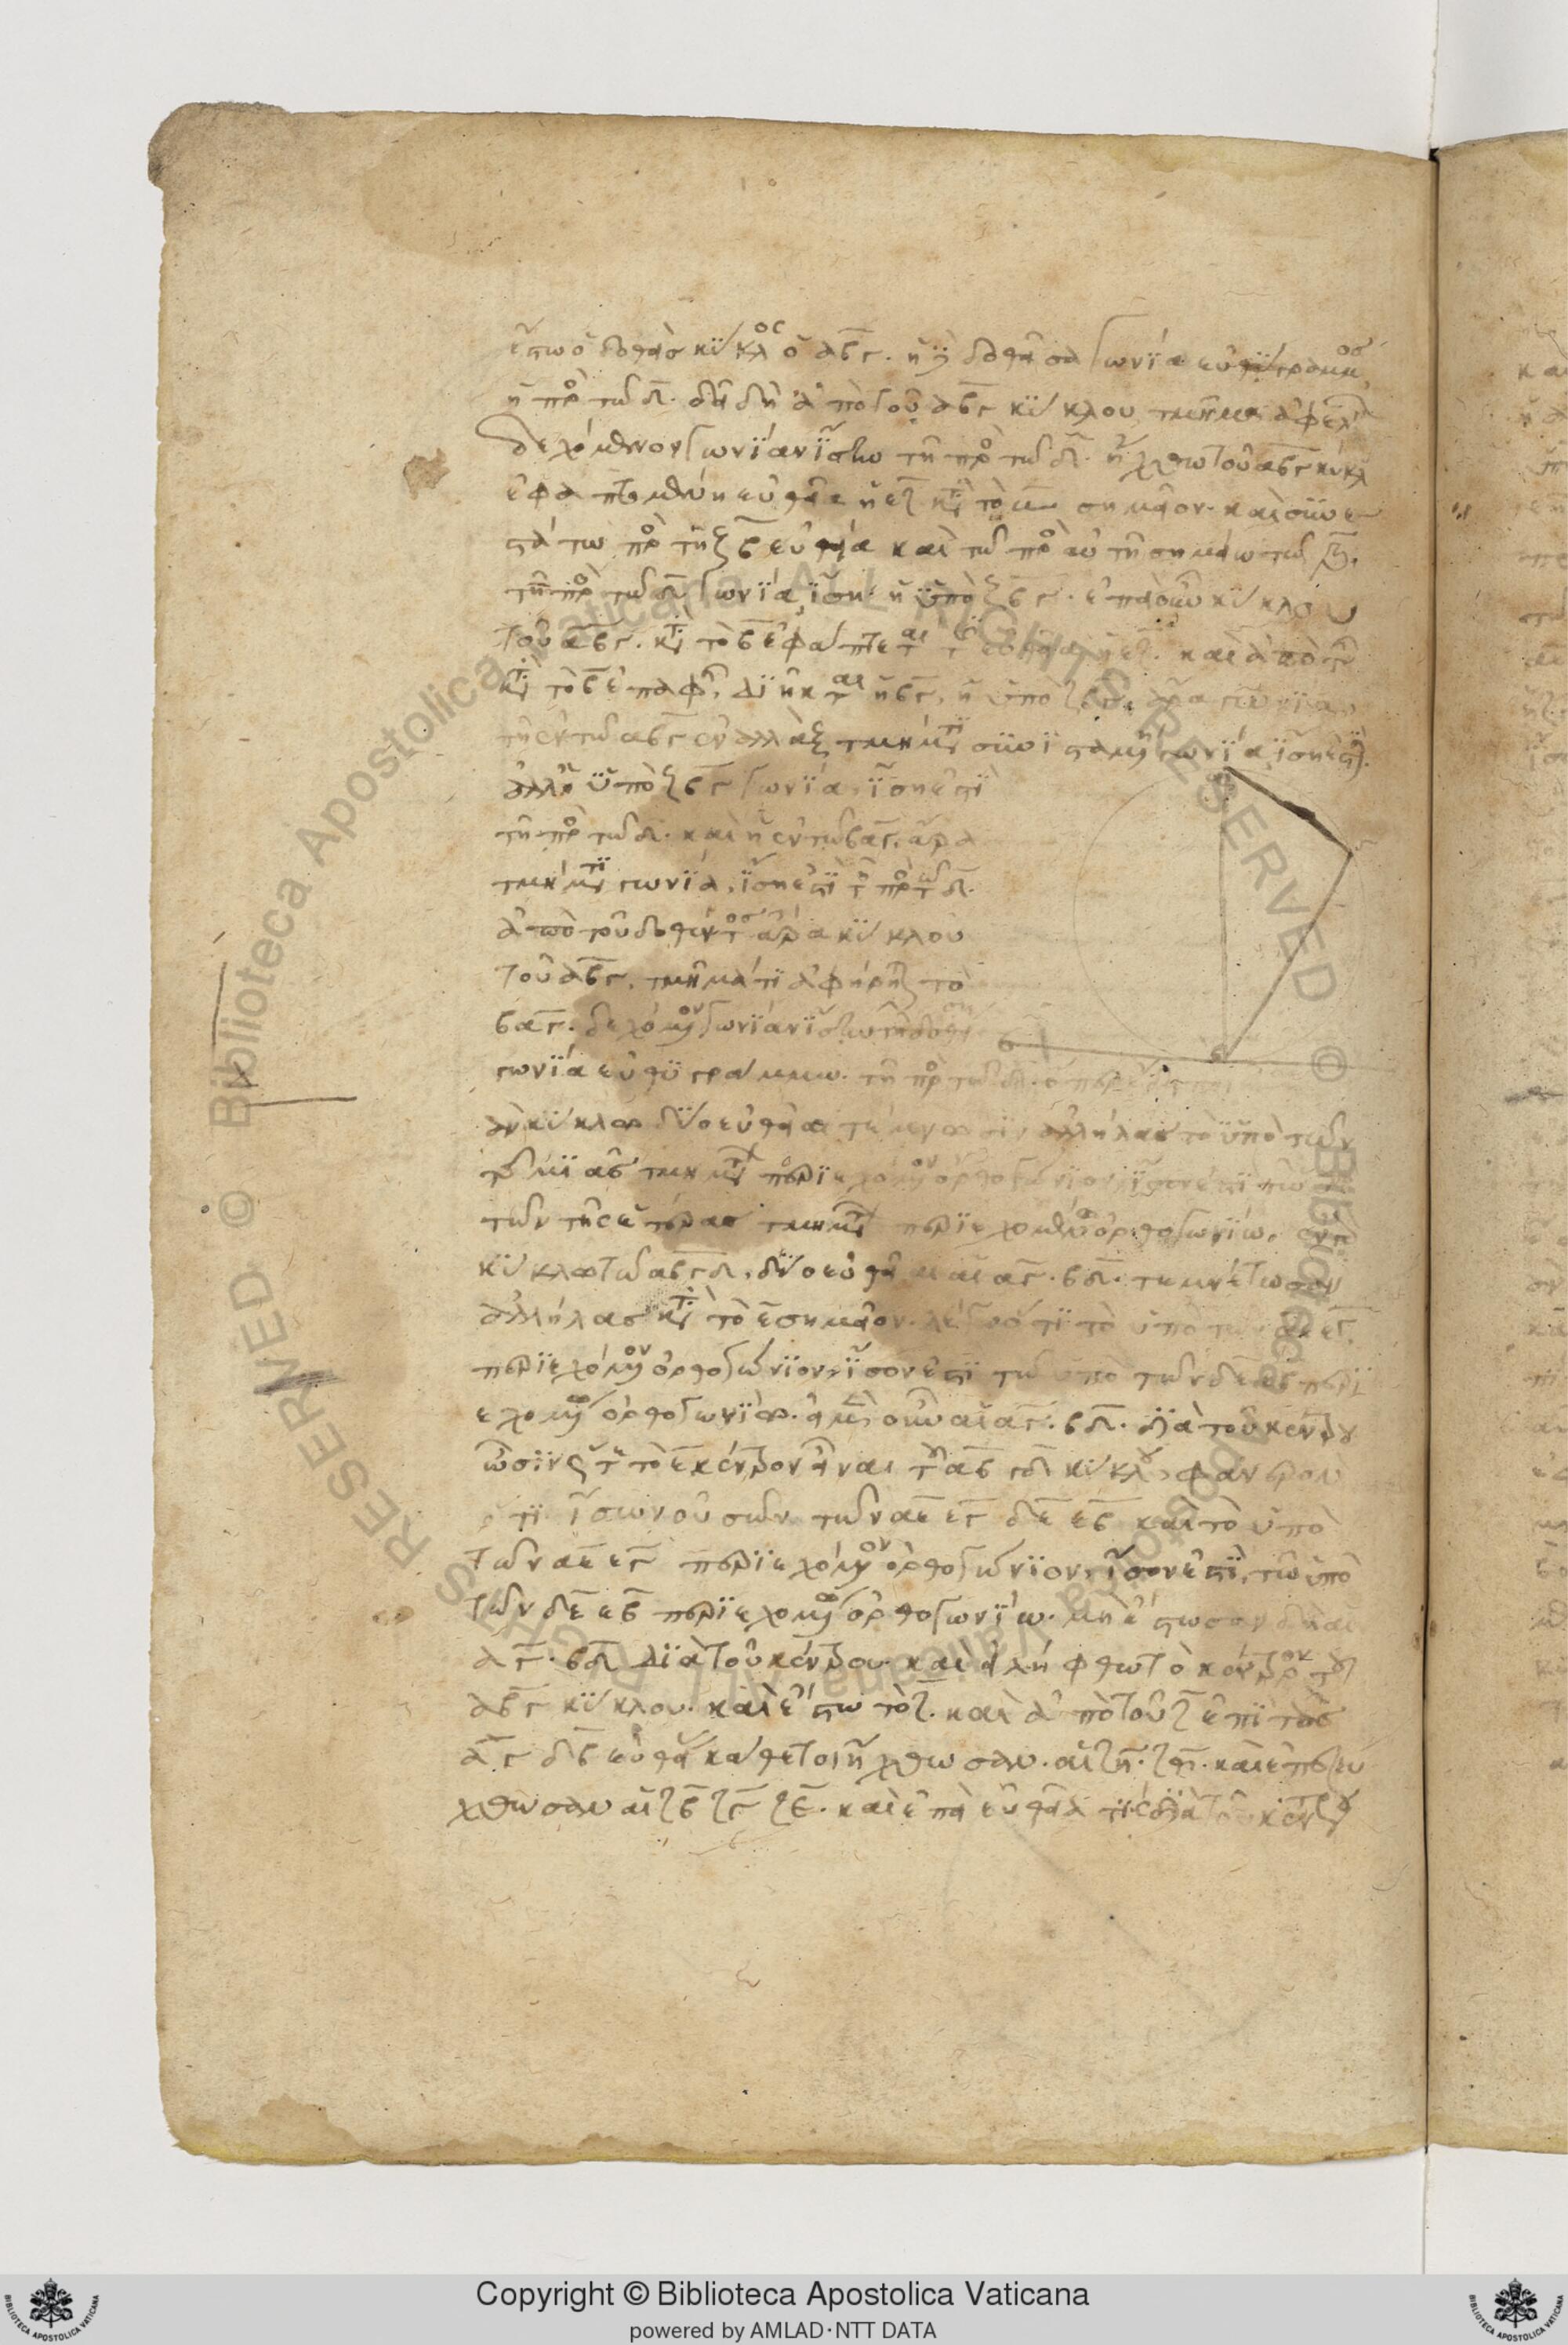 ἔστω ὁ δοθεὶς κύκλος ὁ αβγ. ἡ δὲ δοθεῖσα γωνία εὐθύγραμμος
ἡ πρὸς τῷ δ. δεῖ δὴ ἀπὸ τοῦ αβγ κύκλου τμῆμα ἀφελεῖν
δεχόμενον γωνίαν ἴσην τῇ πρὸς τῷ δ. ἤχθω τοῦ αβγ κύκλ
ἐφαπτομένη εὐθεῖα ἡ εζ κατὰ τὸ σημεῖον. καὶ συνε
στάτω πρὸς τῇ ζβ εὐθεία καὶ τῷ πρὸς αὐτῇ σημείω τῷ β.
τῇ πρὸς τῷ δ γωνία ἴση ἡ ὑπὸ ζβγ. ἐπεὶ οὖν κύκλου
τοῦ αβγ. κατὰ τὸ β ἐφάπτεται τις εὐθεῖα ἡ εζ. καὶ ἀπὸ τῆς
κατὰ τὸ β ἐπαφῆς διῆκται ἡ βγ, ἡ ὑπὸ ζβγ ἄρα γωνία
τῇ ἐν τῷ αβγ ἐναλλὰξ τμήματι συνισταμένη γωνία ἴση ἐστί.
ἀλλ' ἡ ὑπὸ ζβγ γωνία, ἴση ἐστὶ
τῇ πρὸς τῷ δ. καὶ ἡ ἐν τῷ βαγ, ἄρα
τμήματι γωνία, ἴση ἐστὶ τῇ πρὸς τῷ δ.
ἀπὸ τοῦ δοθέντος ἄρα κύκλου
τοῦ αβγ, τμῆμά τι ἀφήρηται τὸ
βαγ. δεχόμενον γωνίαν ἴσην τῇ δοθείση
γωνία εὐθυγράμμω. τῇ πρὸς τῷ δ. ὅπερ ἔδει
ἐὰν κύκλω δύο εὐθεῖαι τέμνωσιν ἀλλήλας τὸ ὑπὸ τῶν
τῆς μιᾶς τμημάτων περιεχόμενον ὀρθογώνιον, ἴσον ἐστὶ τῷ ὑπὸ
τῶν τῆς ἑτέρας τμημάτων περιεχομένω ὀρθογωνίω. ἐν
κύκλω τῷ αβγδ, δύο εὐθεῖαι αἱ αγ. βδ. τεμνέτωσαν
ἀλλήλας κατὰ τὸ ε σημεῖον. λέγω ὅτι τὸ ὑπὸ τῶν αε εγ
περιεχόμενον ὀρθογώνιον, ἴσον ἐστὶ τῷ ὑπὸ τῶν δε εβ περι
εχομένω ὀρθογωνίω. εἰ μὲν οὖν αἱ αγ. βδ. διὰ τοῦ κέντρου
ὦσιν ὥστε τὸ ε κέντρον εἶναι τοῦ αβγδ κύκλου, φανερὸν
ὅτι ἴσων οὐσῶν τῶν αε εγ δε εβ καὶ τὸ ὑπὸ
τῶν αε εγ περιεχόμενον ὀρθογώνιον, ἴσον ἐστὶ, τῷ ὑπὸ
τῶν δε εβ περιεχομένω ὀρθογωνίω. μὴ ἔστωσαν δὴ αἱ
αγ. βδ διὰ τοῦ κέντρου. καὶ εἰλήφθω τὸ κέντρον τοῦ
αβγ κύκλου. καὶ ἔστω τὸ ζ. καὶ ἀπὸ τοῦ ζ ἐπὶ τὰς
αγ δβ εὐθείας κάθετοι ἤχθωσαν. αἱ ζη. ζθ. καὶ ἐπεζεύ
χθωσαν αἱ ζβ ζγ ζε. καὶ ἐπεὶ εὐθεῖά τις διὰ τοῦ κέντρου
Copyright © Biblioteca Apostolica Vaticana
powered by AMLAD·NTT DATA